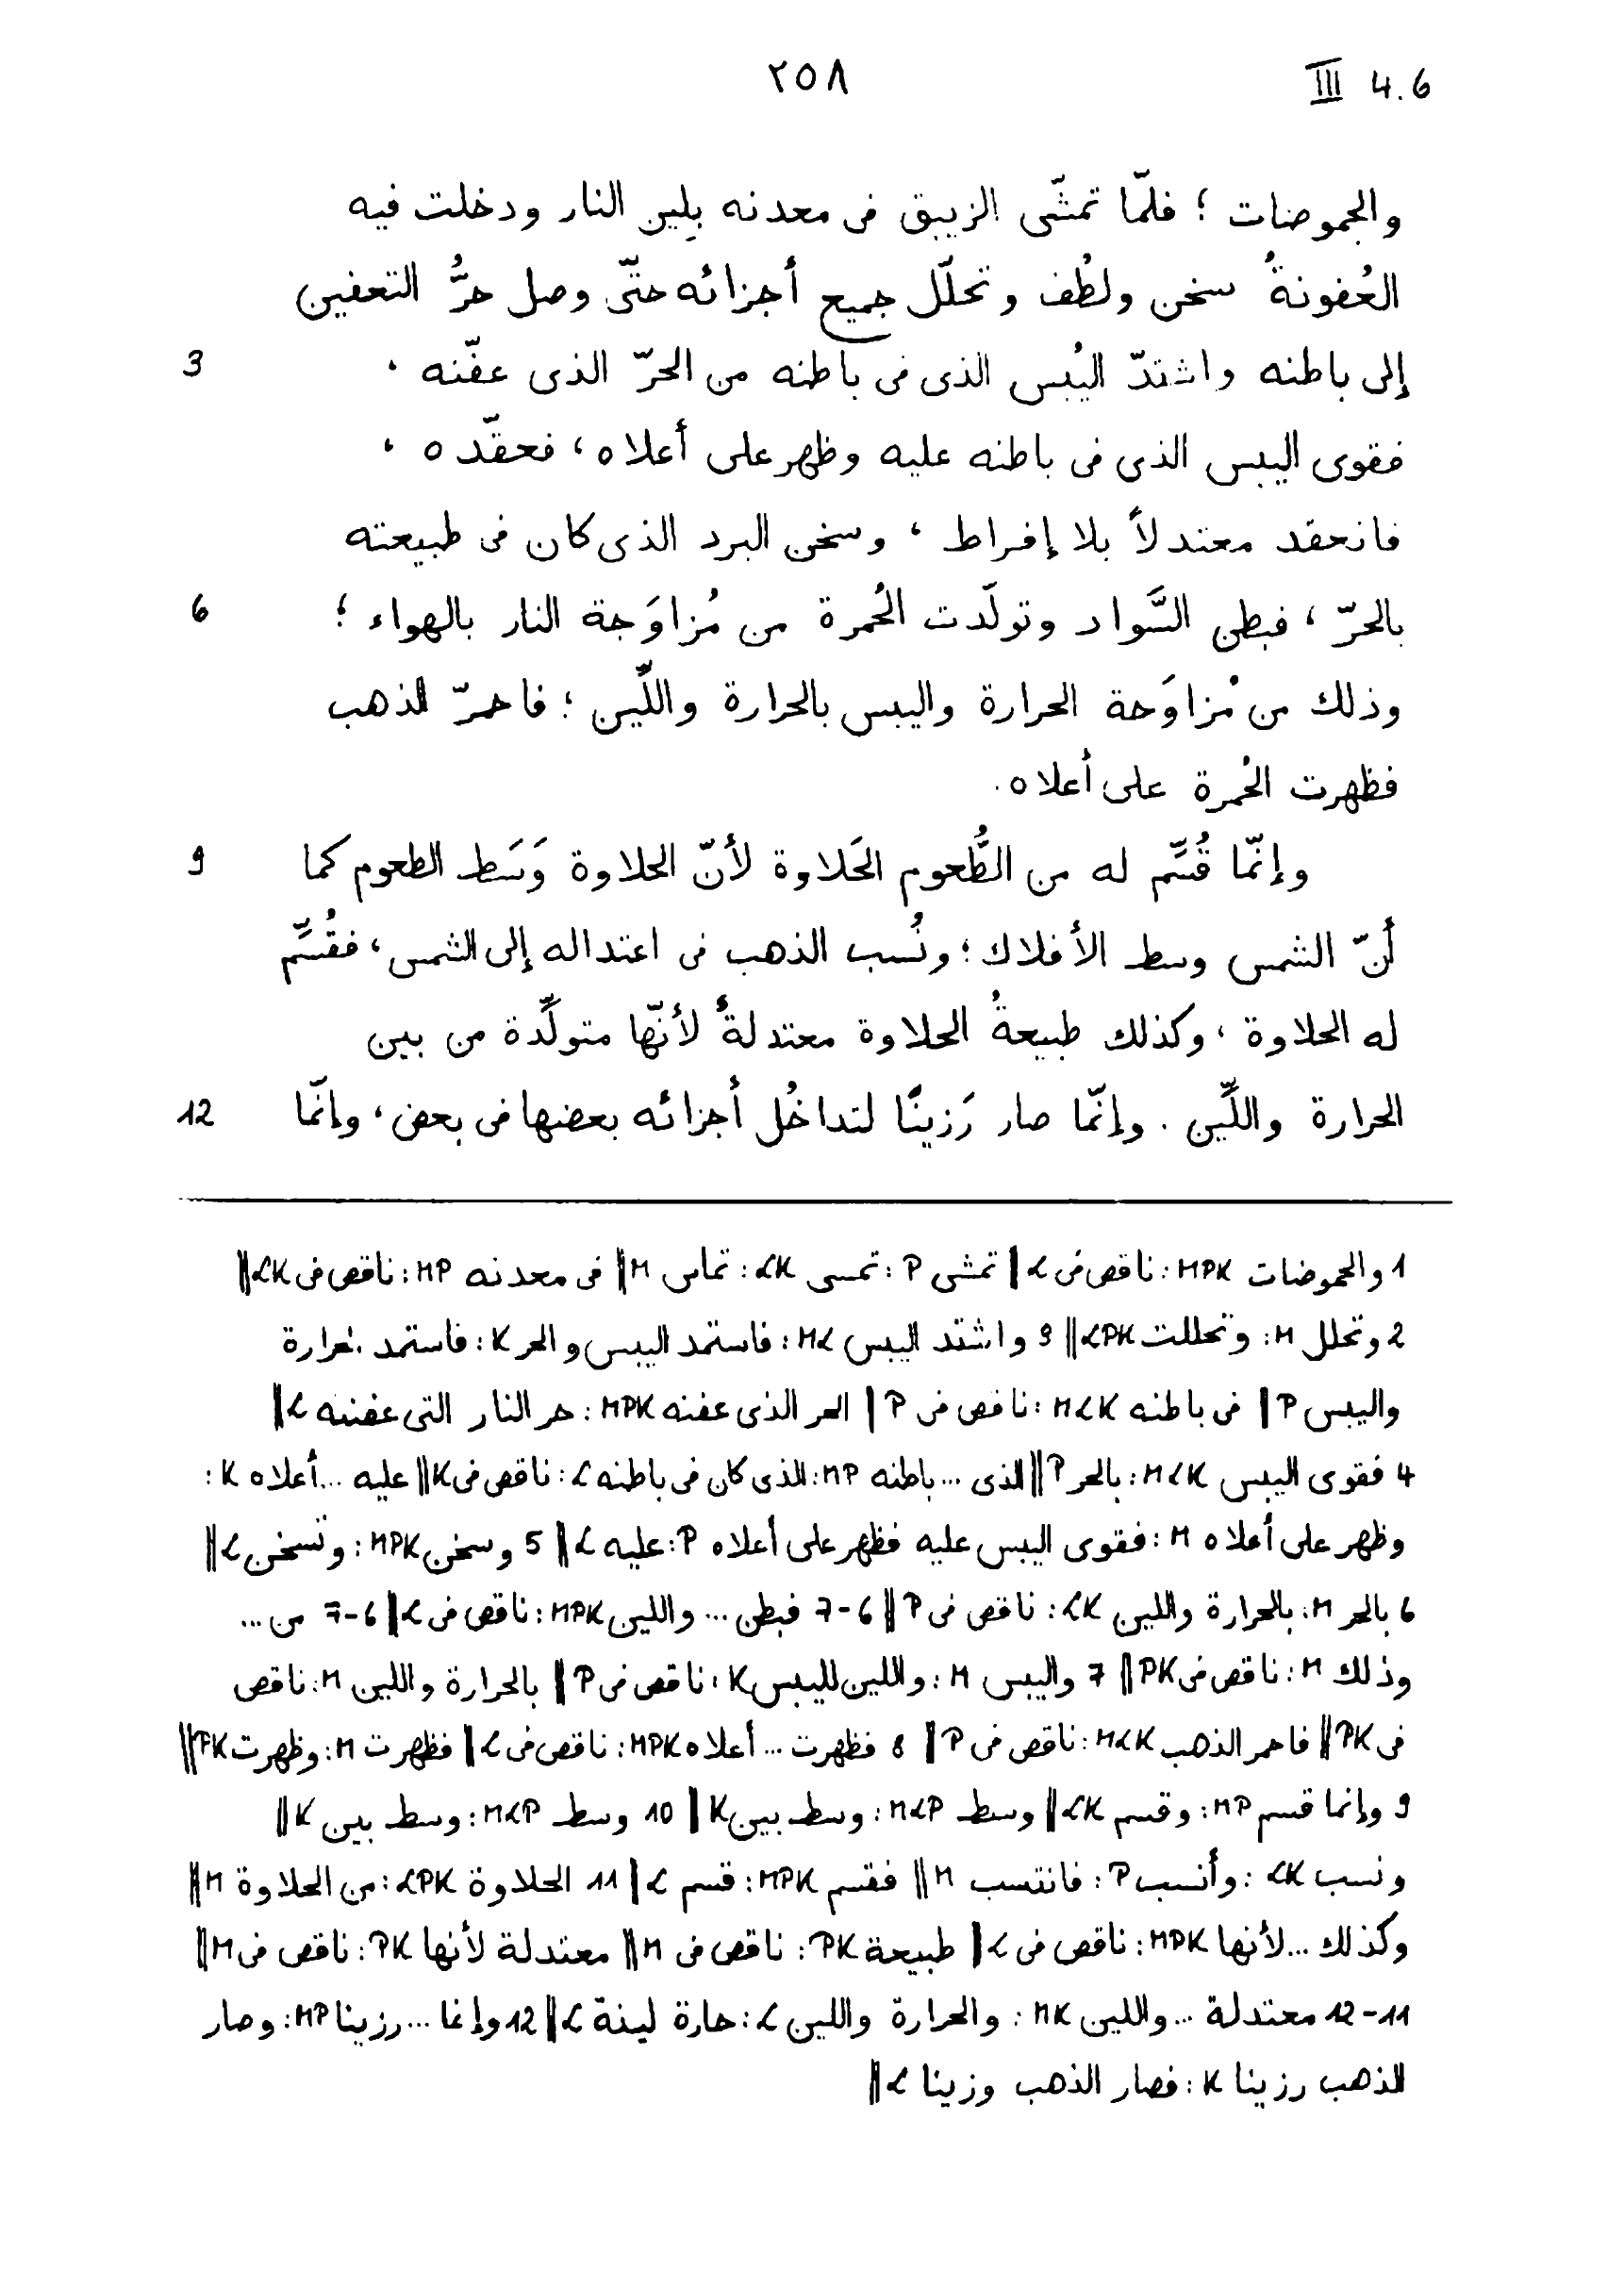 ٢٥٨
III 4.6
والحموضات؛ فلمّا تمشّى الزيبق فى معدنه بِلين النار ودخلت فيه
العُفونةُ سخن ولطُف وتحلّل جميع أجزائه حتّى وصل حرُّ التعفين
إلى باطنه واشتدّ اليُبس الذى فى باطنه من الحرّ الذى عفّنه، 3
فقوى اليبس الذى فى باطنه عليه وظهر على أعلاه، فعقّده،
فانعقد معتدلاً بلا إفراط، وسخن البرد الذى كان فى طبيعته
بالحرّ، فبطن السَّواد وتولّدت الحُمرة من مُزاوَجة النار بالهواء؛ 6
وذلك من مُزاوَجة الحرارة واليبس بالحرارة واللِّين؛ فاحمرّ الذهب
فظهرت الحُمرة على أعلاه.
وإنّما قُسِّم له من الطُّعوم الحَلاوة لأنّ الحلاوة وَسَط الطعوم كما 9
أنّ الشمس وسط الأفلاك؛ ونُسب الذهب فى اعتداله إلى الشمس، فقُسِّم
له الحلاوة، وكذلك طبيعةُ الحلاوة معتدلةٌ لأنّها متولِّدة من بين
الحرارة واللِّين. وإنّما صار رَزينًا لتداخُل أجزائه بعضها فى بعض، وإنّما 12
1 والحموضات MPK: ناقص فى L || تمشى P: تمسى LK: تماس M || فى معدنه MP: ناقص فى LK ||
2 وتحلل M: وتحللت LPK || 3 واشتد اليبس ML: فاستمد اليبس والحر K: فاستمد الحرارة
واليبس P || فى باطنه MLK: ناقص فى P || الحر الذى عفنه MPK: حر النار التى عفنته L ||
4 فقوى اليبس MLK: بالحر P || الذى ... باطنه MP: الذى كان فى باطنه L: ناقص فى K || عليه ... أعلاه K:
وظهر على أعلاه M: فقوى اليبس عليه فظهر على أعلاه P: عليه L || 5 وسخن MPK: وتسخن L ||
6 بالحر M: بالحرارة واللين LK: ناقص فى P || 6-7 فبطن ... واللين MPK: ناقص فى L || 6-7 من ...
وذلك M: ناقص فى PK || 7 واليبس M: واللين لليبس K: ناقص فى P || بالحرارة واللين M: ناقص
فى PK || فاحمر الذهب MLK: ناقص فى P || 8 فظهرت ... أعلاه MPK: ناقص فى L || فظهرت M: وظهرت PK ||
9 وإنما قسم MP: وقسم LK || وسط MLP: وسط بين K || 10 وسط MLP: وسط بين K ||
ونسب LK: وأنسب P: فانتسب M || فقسم MPK: قسم L || 11 الحلاوة LPK: من الحلاوة M ||
وكذلك ... لأنها MPK: ناقص فى L || طبيعة PK: ناقص فى M || معتدلة لأنها PK: ناقص فى M ||
11-12 معتدلة ... واللين MK: والحرارة واللين L: حارة لينة L || 12 وإنما ... رزينا MP: وصار
الذهب رزينا K: فصار الذهب وزينا L ||